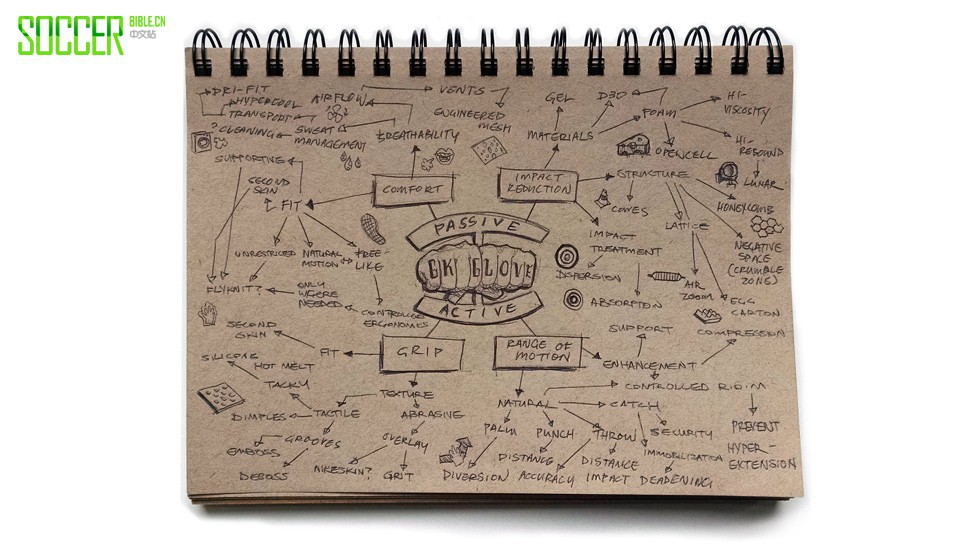 SOCCER
BIBLE.CN
中文站
DRI-FIT
HYPERCOOL
TRANSPORT
AIRFLOW
VENTS
ENGINEERED
MESH
GEL
D3O
FOAM
HI-
VISCOSITY
? CLEANING
SWEAT
MANAGEMENT
BREATHABILITY
MATERIALS
OPENCELL
HI-
REBOUND
SUPPORTIVE
SECOND
SKIN
FIT
COMFORT
IMPACT
REDUCTION
STRUCTURE
LUNAR
CONES
HONEYCOMB
LATTICE
PASSIVE
GK GLOVE
ACTIVE
UNRESTRICED
NATURAL
MOTION
FREE-
LIKE
IMPACT
TREATMENT
NEGATIVE
SPACE
(CRUMBLE
ZONE)
FLYKNIT?
ONLY
WHERE
NEEDED
DISPERSION
AIR
ZOOM
CONTROLLED
ERGONOMICS
ABSORPTION
EGG
CARTON
SECOND
SKIN
SUPPORT
COMPRESSION
SILICONE
HOT MELT
FIT
GRIP
RANGE OF
MOTION
ENHANCEMENT
TACKY
TEXTURE
NATURAL
CONTROLLED RIDIM
DIMPLES
TACTILE
ABRASIVE
CATCH
PREVENT
HYPER-
EXTENSION
EMBOSS
GROOVES
OVERLAY
PALM
PUNCH
THROW
SECURITY
DEBOSS
NIKESKIN?
GRIT
DISTANCE
DISTANCE
DIVERSION
ACCURACY
IMPACT DEADENING